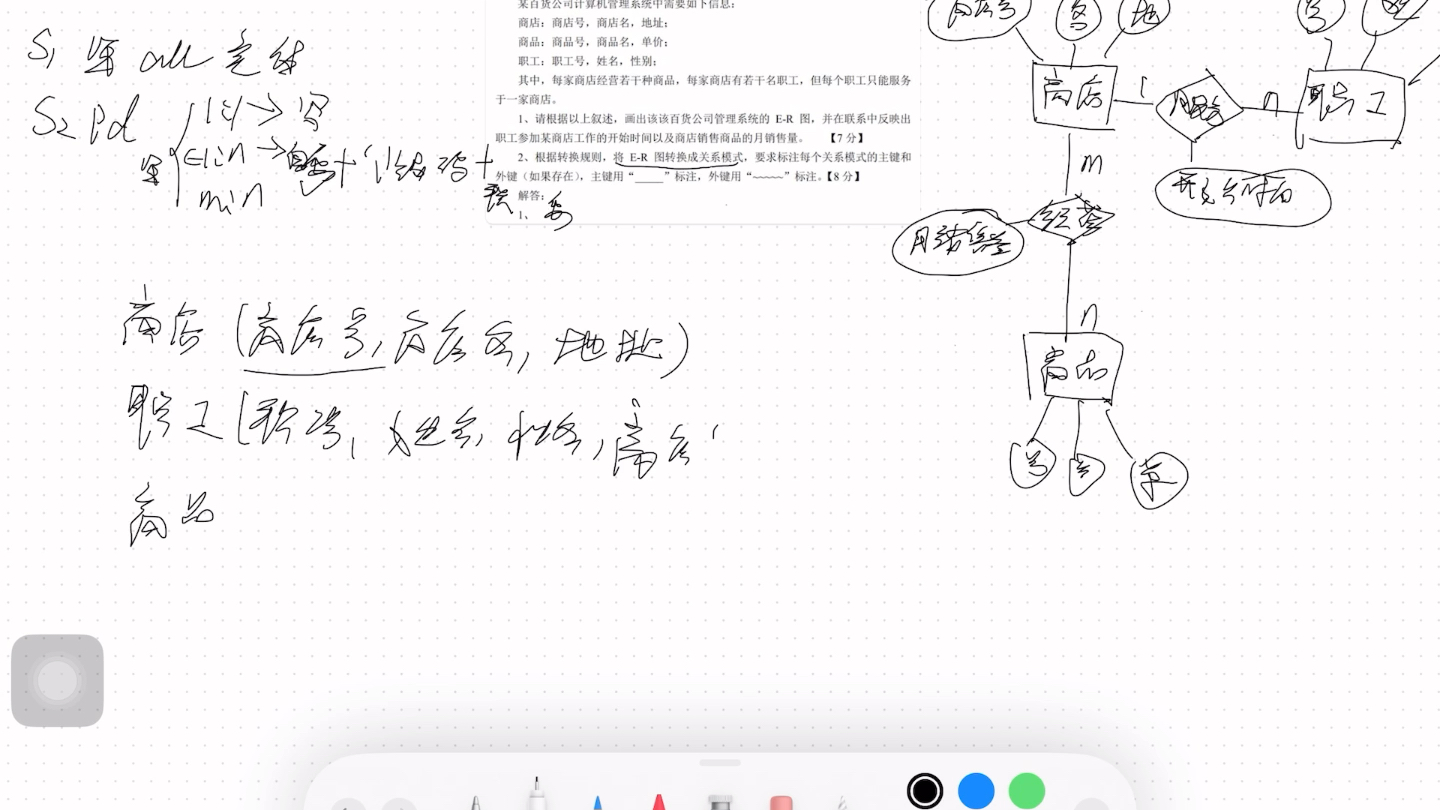 某百货公司计算机管理系统中需要如下信息:
商店：商店号，商店名，地址；
商品：商品号，商品名，单价；
职工：职工号，姓名，性别；
其中，每家商店经营若干种商品，每家商店有若干名职工，但每个职工只能服务
于一家商店。
1、请根据以上叙述，画出该该百货公司管理系统的 E-R 图，并在联系中反映出
职工参加某商店工作的开始时间以及商店销售商品的月销售量。 【7 分】
2、根据转换规则，将 E-R 图转换成关系模式，要求标注每个关系模式的主键和
外键（如果存在），主键用“_____”标注，外键用“~~~~~”标注。【8 分】
解答：
1、
S1 写 all 实体
S2 pd 1:1 → 写
写 1:n →
m:n
商店 (商店号, 商店名, 地址)
职工 (职工号, 姓名, 性别, 商店
商品
商店号
名
地
号
商店
1
服务
n
职工
m
开始时间
月销售量
经营
n
商品
号
名
单